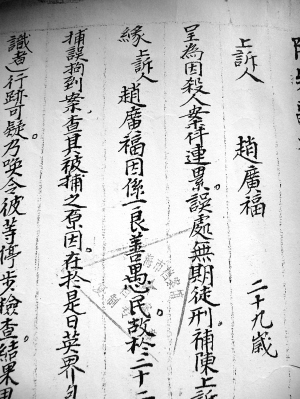 上訴人　趙廣福　二十九歲
呈為因殺人案件連累誤處無期徒刑補陳上訴
緣上訴人趙廣福因係一良善愚民故於三十二
捕誤拘到案。查其被捕之原因。在於是日英界
識者）行跡可疑乃喚令彼等停步檢查結果